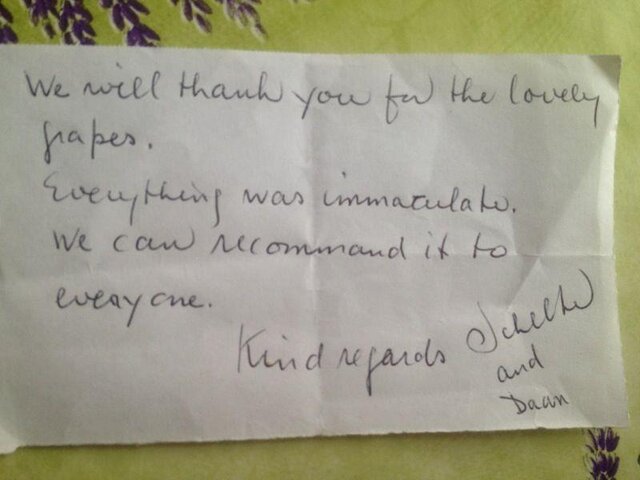 We will thank you for the lovely
grapes.
Everything was immaculate.
We can recommand it to
everyone.
Kind regards Schelte
and
Daan